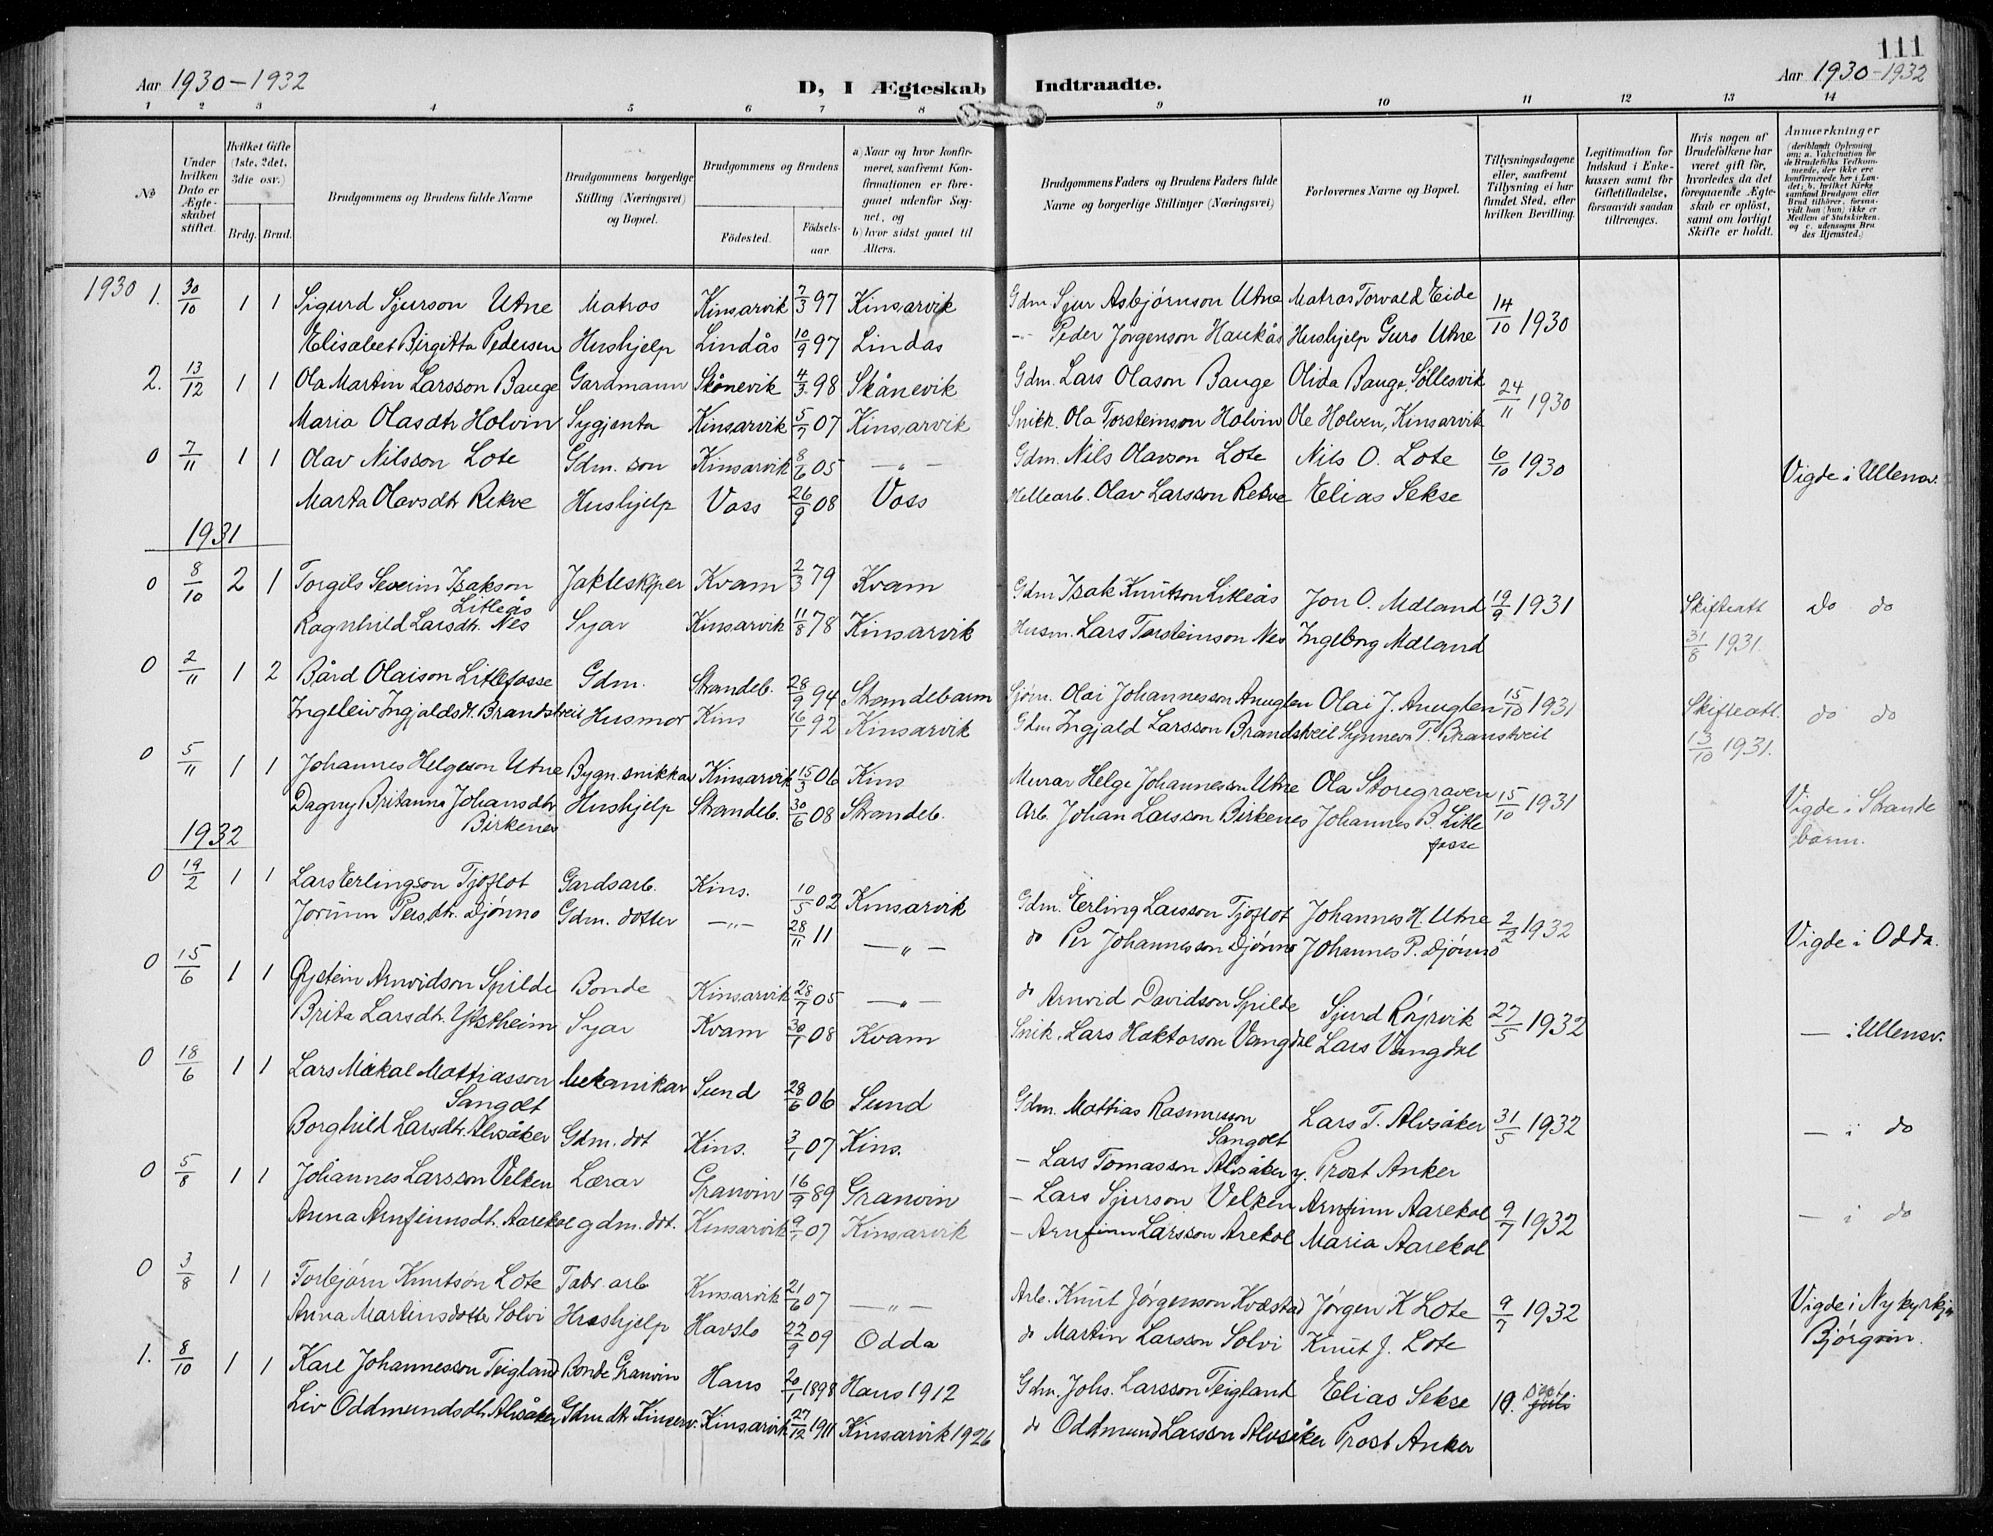 111
Aar 1930-1932
D, I Ægteskab Indtraadte.
Aar 1930-1932
1 2 3 4 5 6 7 8 9 10 11 12 13 14
No
Under hvilken Dato er Ægteskabet stiftet.
Hvilket Gifte (1ste, 2det, 3die osv.)
Brdg. Brud.
Brudgommens og Brudens fulde Navne
Brudgommens borgerlige Stilling (Næringsvei) og Bopæl.
Brudgommens og Brudens
Fødested.
Fødselsaar
a) Naar og hvor konfirmeret, saafremt Konfirmationen er foregaaet udenfor Sognet, og
b) hvor sidst gaaet til Alters.
Brudgommens Faders og Brudens Faders fulde Navne og borgerlige Stillinger (Næringsvei)
Forlovernes Navne og Bopæl.
Tillysningsdagene eller, saafremt Tillysning ei har fundet Sted, efter hvilken Bevilling.
Legitimation for Indskud i Enkekassen samt for Giftetilladelse, forsaavidt saadan tiltrænges.
Hvis nogen af Brudefolkene har været gift før, hvorledes da det foregaaende Ægteskab er opløst, samt om lovligt Skifte er holdt.
Anmærkninger (deriblandt Oplysning om: a. Vakcination for de Brudefolks Vedkommende, der ikke ere konfirmerede her i Landet; b. hvilket Kirkesamfund Brudgom eller Brud tilhører, forsaavidt han (hun) ikke er Medlem af Statskirken. og c. udensogns Brudes Hjemsted.)
1930 1. 30/10 1 1 Sigurd Sjurson Utne Matros Kinsarvik 7/3 97 Kinsarvik Gdm. Sjur Asbjørnson Utne Matros Torvald Eide 14/10 1930
Elisabet Birgitta Pedersen Hushjelp Lindås 10/9 97 Lindas - Peder Jørgenson Haukås Hushjelp Guro Utne
2. 13/12 1 1 Ola Martin Larsson Bauge Gardmann Skånevik 4/3 98 Skånevik Gdm. Lars Olason Bauge Olida Bauge, Søllesvik 24/11 1930
Maria Olasdtr Holvin Sygjenta Kinsarvik 5/7 07 Kinsarvik Snikk. Ola Torsteinson Holvin Ole Holven, Kinsarvik
0 7/11 1 1 Olav Nilsson Lote Gdm. son Kinsarvik 8/6 05 -"- Gdm. Nils Olavson Lote Nils O. Lote 6/10 1930 Vigde i Ullensv.
Marta Olavsdtr Rekve Hushjelp Voss 26/9 08 Voss Hellearb. Olav Larsson Rekve Elias Sekse
1931
0 8/10 2 1 Torgils Severin Isakson Litleås Jakteskper Kvam 2/3 79 Kvam Gdm Isak Knutson Litleås Jon O. Mdland 19/9 1931 Skifteatt 31/8 1931. do do
Ragnhild Larsdtr. Nes Syar Kinsarvik 11/8 78 Kinsarvik Husm. Lars Torsteinson Nes Ingeborg Mdland
0 2/11 1 2 Bård Olaison Litlefosse Gdm. Strandeb. 28/9 94 Strandebarm Sjøm. Olai Johannesson Anuglen Olai J. Anuglen 15/10 1931 Skifteatt. 13/10 1931. do do
Ingeleiv Ingjaldsdt. Brandstveit Husmor Kins 16/1 92 Kinsarvik Gdm Ingjald Larsson Brandstveit Synneva T. Branstveit
0 5/11 1 1 Johannes Helgeson Utne Bygn. snikkar Kinsarvik 15/3 06 Kins Murar Helge Johannesson Utne Ola Storegraven 15/10 1931 Vigde i Strandebarm.
Dagny Britanna Johansdtr Birkenes Hushjelp Strandeb. 30/6 08 Strandeb. Arb. Johan Larsson Birkenes Johannes B. Litlefosse
1932
0 19/2 1 1 Lars Erlingson Tjoflot Gardsarb. Kins. 10/5 02 Kinsarvik Gdm. Eerling Larsson Tjoflot Johannes H. Utne 2/2 1932 Vigde i Odda.
Jorunn Persdtr. Djønno Gdm. dotter -"- 28/11 11 -"- do Per Johannesson Djønno Johannes P. Djønno
0 15/6 1 1 Øystein Arnvidson Spilde Bonde Kinsarvik 28/7 05 -"- do Arnvid Davidson Spilde Sjurd Røyrvik 27/5 1932 - i Ullensv.
Brita Larsdt. Ystheim Syar Kvam 30/1 08 Kvam Snik. Lars Haktorson Vangdal Lars Vangdal
0 18/6 1 1 Lars Mikal Mattiasson Sangolt Mekanikar Sund 28/6 06 Sund Gdm. Mattias Rasmusson Sangolt Lars T. Alvsåker 31/5 1932 - i do
Borghild Larsdtr. Alvsåker Gdm. dot Kins. 3/1 07 Kins. - Lars Tomasson Alvsåker y. Prost Anker
0 5/8 1 1 Johannes Larsson Velken Lærar Granvin 16/9 89 Granvin - Lars Sjurson Velken Arnfinn Aarekol 9/7 1932 - i do
Anna Arnfinnsdt. Aarekol gdm. dot. Kinsarvik 9/1 07 Kinsarvik - Arnfinn Larsson Arekol Maria Aarekol
0 3/8 1 1 Torbjørn Knutson Lote Fabr. arb Kinsarvik 21/6 07 -"- Arb. Knut Jørgenson Kvæstad Jørgen K Lote 9/7 1932 Vigde i Nykyrkja Bjørgvin.
Anna Martinsdotter Solvi Hushjelp Havslo 22/9 09 Odda do Martin Larsson Solvi Knut J. Lote
1. 8/10 1 1 Kare Johannesson Teigland Bonde Granvin Haus 20/1 1898 Haus 1912 Gdm. Johs. Larsson Teigland Elias Sekse 10. sept
Liv Oddmundsdt. Alvsåker Gdm dtr Kinserv. Kinsarvik 27/12 1911 Kinsarvik 1926 do Oddmund Larsson Alvsåker Prost Anker